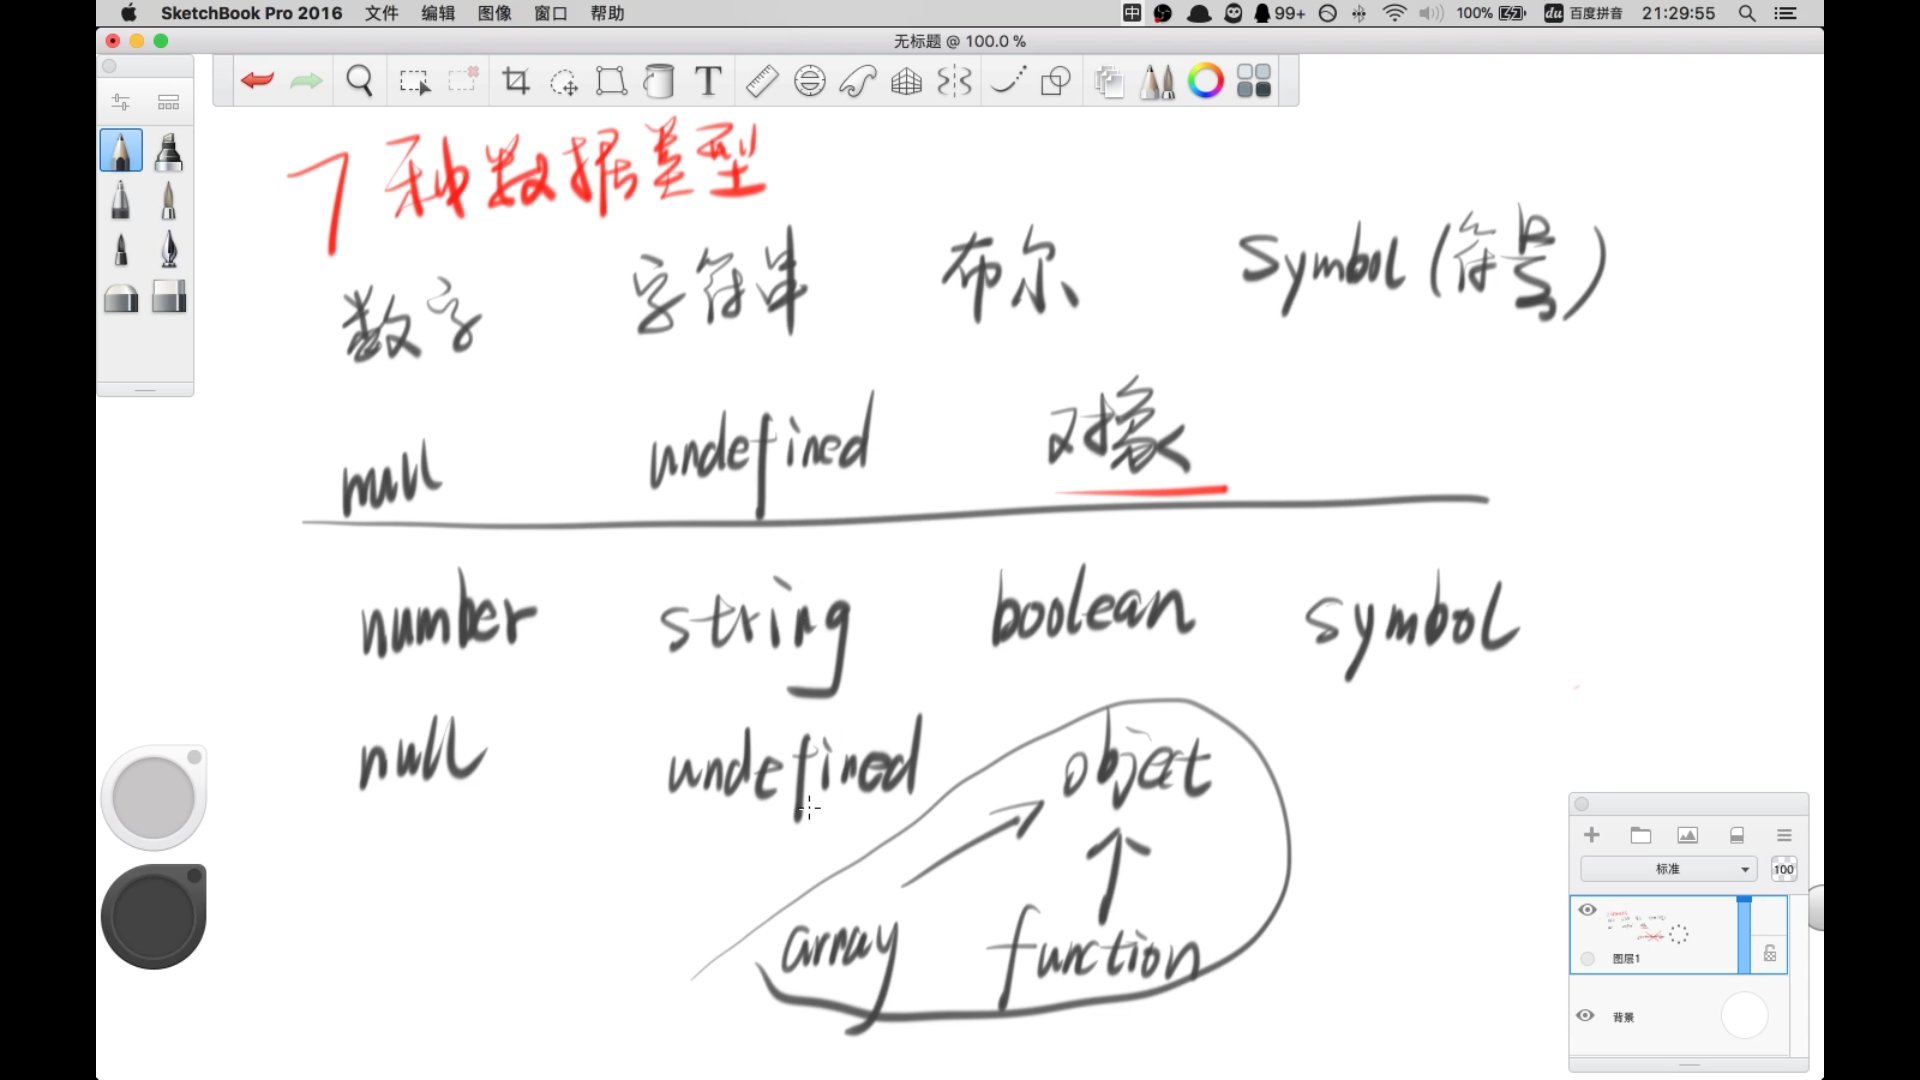 SketchBook Pro 2016 文件 编辑 图像 窗口 帮助 中 99+ 100% du 百度拼音 21:29:55
无标题 @ 100.0 %
T
7种数据类型
数字 字符串 布尔 Symbol(符号)
null undefined 对象
number string boolean symbol
null undefined object
array function
标准 100
图层1
背景